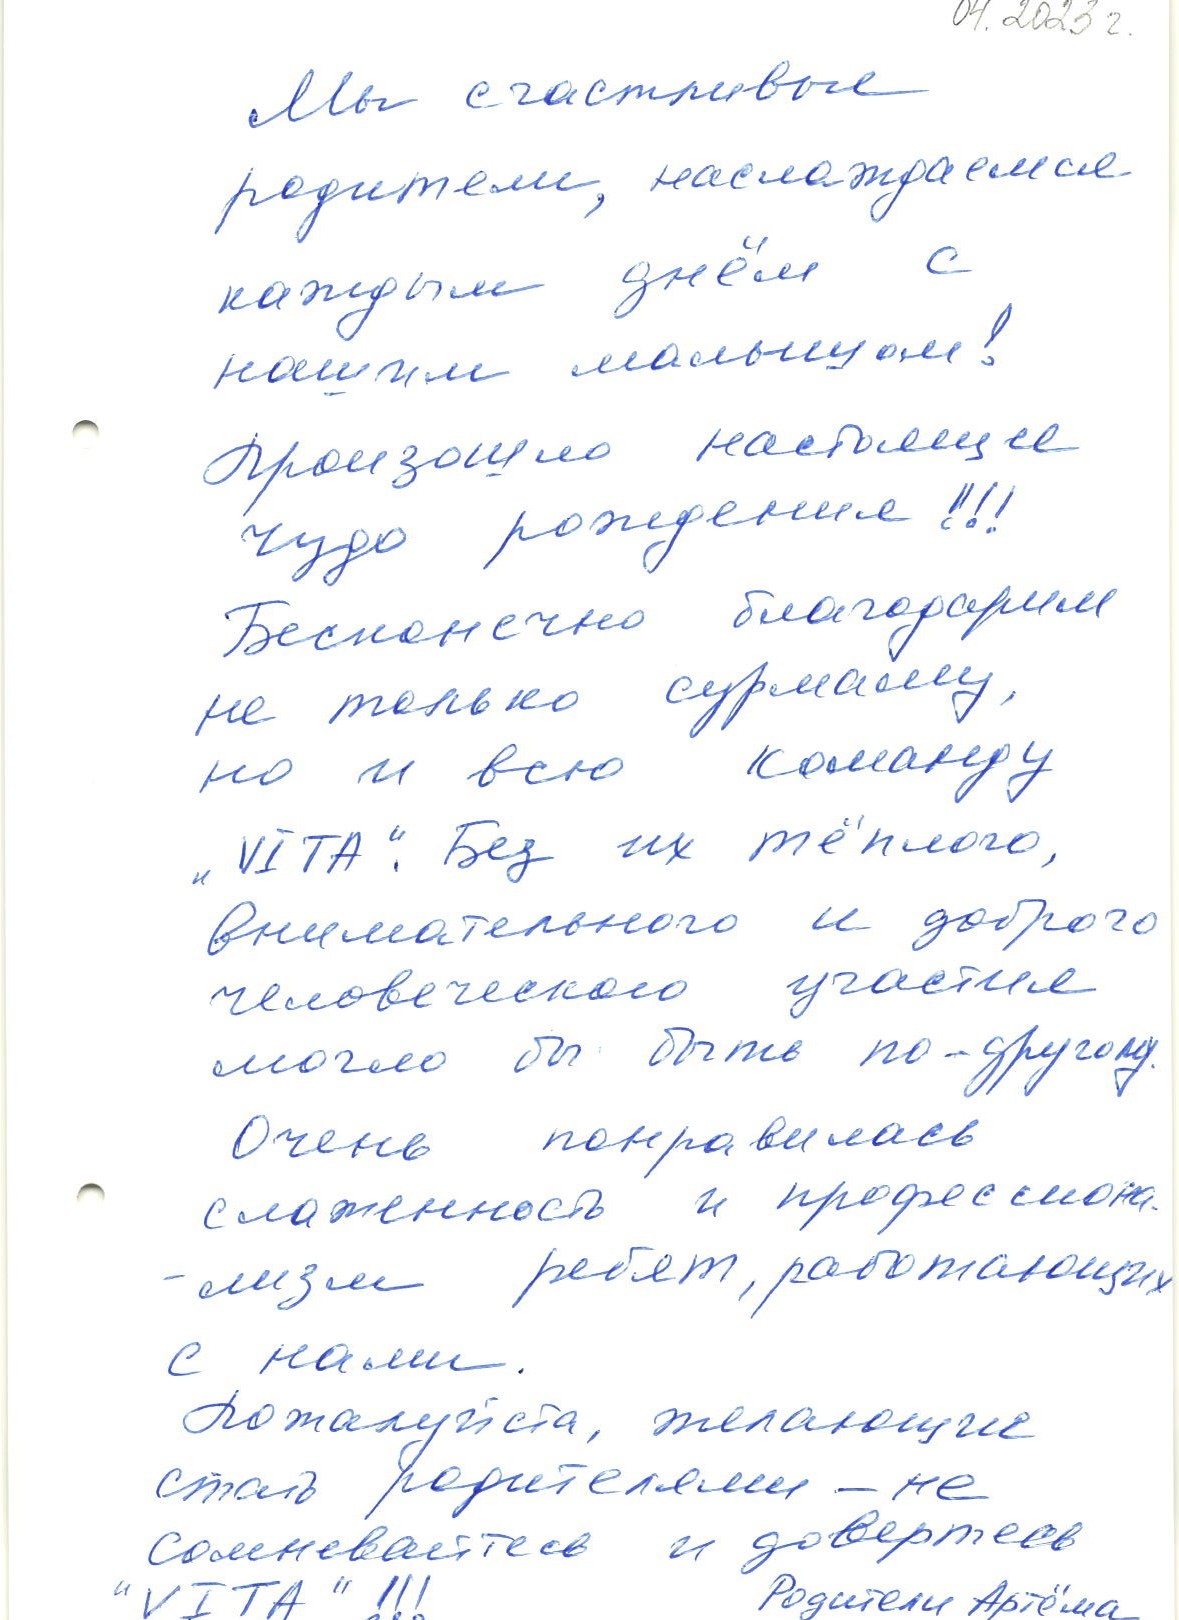 04.2023 г.
Мы счастливые
родители, наслаждаемся
каждым днём с
нашим малышом!
Произошло настоящее
чудо рождения!!!
Бесконечно благодарим
не только сурмашу,
но и всю команду
„VITA“. Без их тёплого,
внимательного и доброго
человеческого участия
могло бы быть по-другому.
Очень понравилась
слаженность и профессиона-
-лизм ребят, работающих
с нами.
Пожалуйста, желающие
стать родителями – не
сомневайтесь и довертесь
"VITA" !!!
Родители Артёма